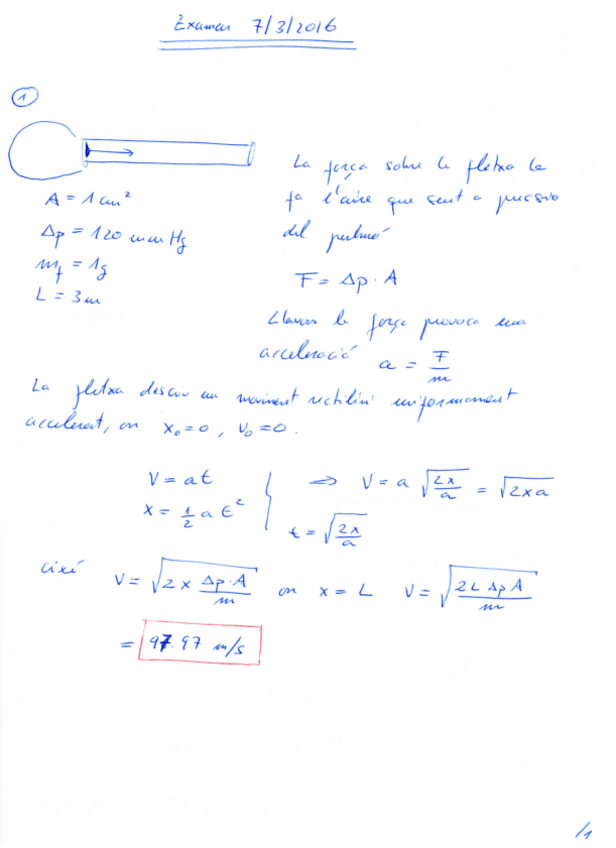 Examen 7/3/2016
1
A = 1 cm²
Δp = 120 mm Hg
m_f = 1g
L = 3m
La força sobre la fletxa la
fa l'aire que sent a pressió
del pulmó
F = Δp · A
Llavors la força provoca una
acceleració a = F/m
La fletxa descriu un moviment rectilini uniformement
accelerat, on x₀ = 0, v₀ = 0.
V = at
x = 1/2 a t²
t = √(2x/a)
⇒ V = a √(2x/a) = √(2xa)
així V = √(2 x Δp·A/m) on x = L V = √(2L Δp A/m)
= 97.97 m/s
/1